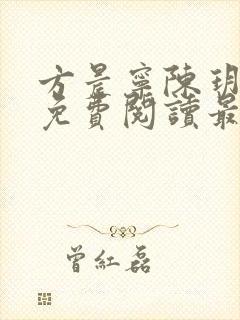 方晨寧陳玥
免費閱讀最
曾紅磊